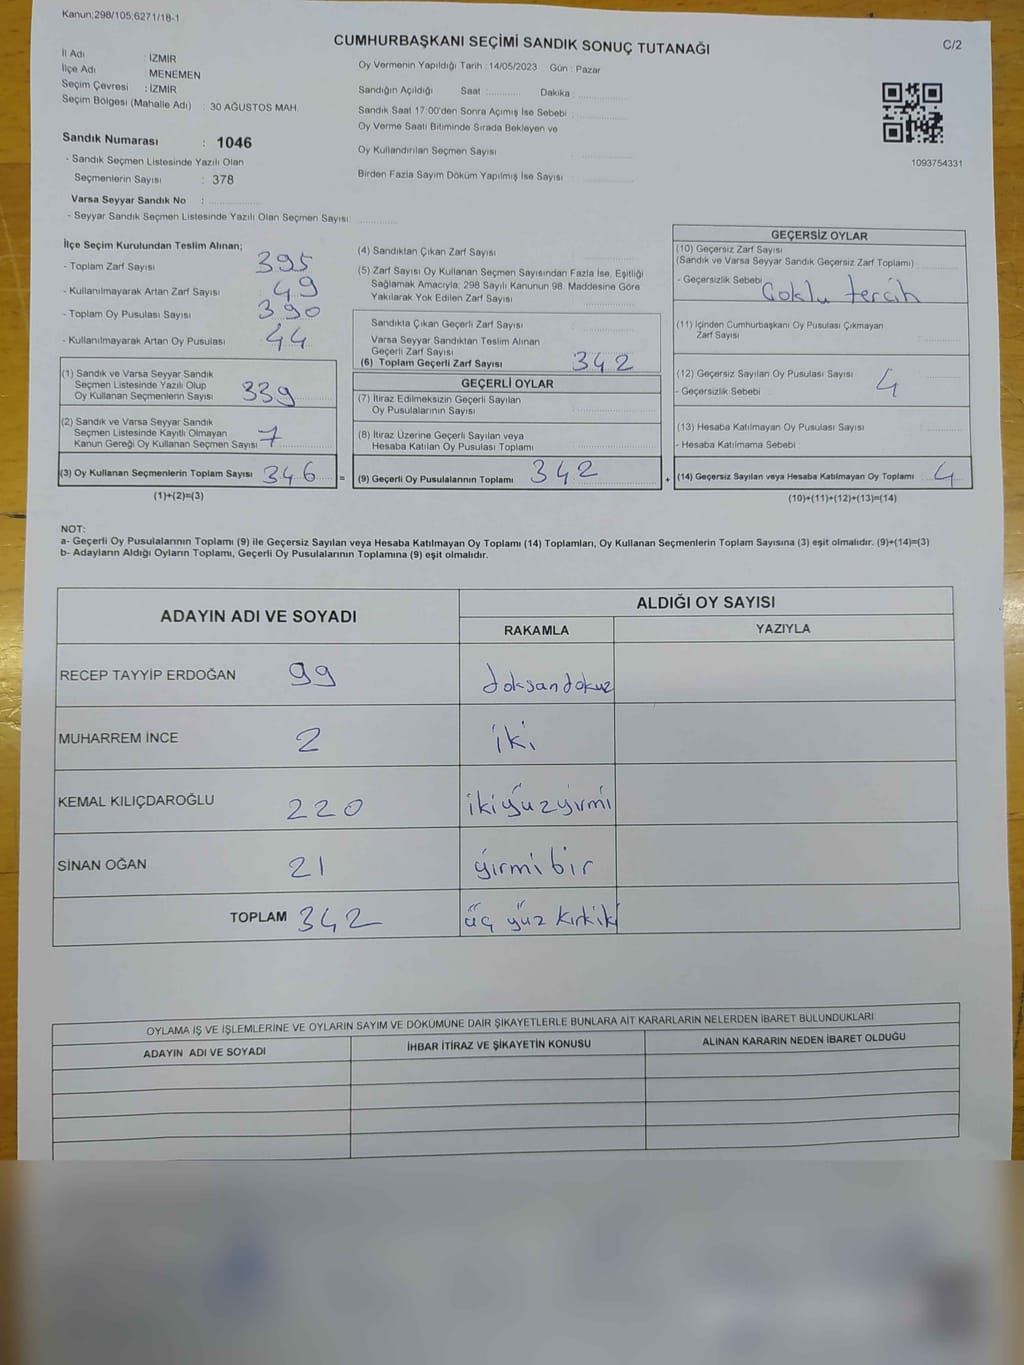 Kanun;298/105,6271/18-1
CUMHURBAŞKANI SEÇİMİ SANDIK SONUÇ TUTANAĞI
C/2
İl Adı : İZMİR
İlçe Adı : MENEMEN
Seçim Çevresi : İZMİR
Seçim Bölgesi (Mahalle Adı) : 30 AĞUSTOS MAH.
Sandık Numarası : 1046
- Sandık Seçmen Listesinde Yazılı Olan
Seçmenlerin Sayısı : 378
Varsa Seyyar Sandık No :
- Seyyar Sandık Seçmen Listesinde Yazılı Olan Seçmen Sayısı
Oy Vermenin Yapıldığı Tarih :14/05/2023 Gün : Pazar
Sandığın Açıldığı Saat : Dakika :
Sandık Saat 17:00'den Sonra Açımış İse Sebebi :
Oy Verme Saati Bitiminde Sırada Bekleyen ve
Oy Kullandırılan Seçmen Sayısı :
Birden Fazla Sayım Döküm Yapılmış İse Sayısı :
1093754331
İlçe Seçim Kurulundan Teslim Alınan;
- Toplam Zarf Sayısı 395
- Kullanılmayarak Artan Zarf Sayısı 49
- Toplam Oy Pusulası Sayısı 390
- Kullanılmayarak Artan Oy Pusulası 44
(1) Sandık ve Varsa Seyyar Sandık
Seçmen Listesinde Yazılı Olup
Oy Kullanan Seçmenlerin Sayısı 339
(2) Sandık ve Varsa Seyyar Sandık
Seçmen Listesinde Kayıtlı Olmayan
Kanun Gereği Oy Kullanan Seçmen Sayısı 7
(3) Oy Kullanan Seçmenlerin Toplam Sayısı 346 =
(1)+(2)=(3)
(4) Sandıktan Çıkan Zarf Sayısı
(5) Zarf Sayısı Oy Kullanan Seçmen Sayısından Fazla İse, Eşitliği
Sağlamak Amacıyla; 298 Sayılı Kanunun 98. Maddesine Göre
Yakılarak Yok Edilen Zarf Sayısı
Sandıkta Çıkan Geçerli Zarf Sayısı
Varsa Seyyar Sandıktan Teslim Alınan
Geçerli Zarf Sayısı
(6) Toplam Geçerli Zarf Sayısı 342
GEÇERLİ OYLAR
(7) İtiraz Edilmeksizin Geçerli Sayılan
Oy Pusulalarının Sayısı
(8) İtiraz Üzerine Geçerli Sayılan veya
Hesaba Katılan Oy Pusulası Toplamı
(9) Geçerli Oy Pusulalarının Toplamı 342 +
GEÇERSİZ OYLAR
(10) Geçersiz Zarf Sayısı
(Sandık ve Varsa Seyyar Sandık Geçersiz Zarf Toplamı)
- Geçersizlik Sebebi Çoklu tercih
(11) İçinden Cumhurbaşkanı Oy Pusulası Çıkmayan
Zarf Sayısı
(12) Geçersiz Sayılan Oy Pusulası Sayısı 4
- Geçersizlik Sebebi :
(13) Hesaba Katılmayan Oy Pusulası Sayısı
- Hesaba Katılmama Sebebi :
(14) Geçersiz Sayılan veya Hesaba Katılmayan Oy Toplamı 4
(10)+(11)+(12)+(13)=(14)
NOT:
a- Geçerli Oy Pusulalarının Toplamı (9) ile Geçersiz Sayılan veya Hesaba Katılmayan Oy Toplamı (14) Toplamları, Oy Kullanan Seçmenlerin Toplam Sayısına (3) eşit olmalıdır. (9)+(14)=(3)
b- Adayların Aldığı Oyların Toplamı, Geçerli Oy Pusulalarının Toplamına (9) eşit olmalıdır.
ADAYIN ADI VE SOYADI
ALDIĞI OY SAYISI
RAKAMLA YAZIYLA
RECEP TAYYİP ERDOĞAN 99 doksandokuz
MUHARREM İNCE 2 iki
KEMAL KILIÇDAROĞLU 220 ikiyüzyirmi
SİNAN OĞAN 21 yirmibir
TOPLAM 342 üç yüz kırkiki
OYLAMA İŞ VE İŞLEMLERİNE VE OYLARIN SAYIM VE DÖKÜMÜNE DAİR ŞİKAYETLERLE BUNLARA AİT KARARLARIN NELERDEN İBARET BULUNDUKLARI
ADAYIN ADI VE SOYADI İHBAR İTİRAZ VE ŞİKAYETİN KONUSU ALINAN KARARIN NEDEN İBARET OLDUĞU